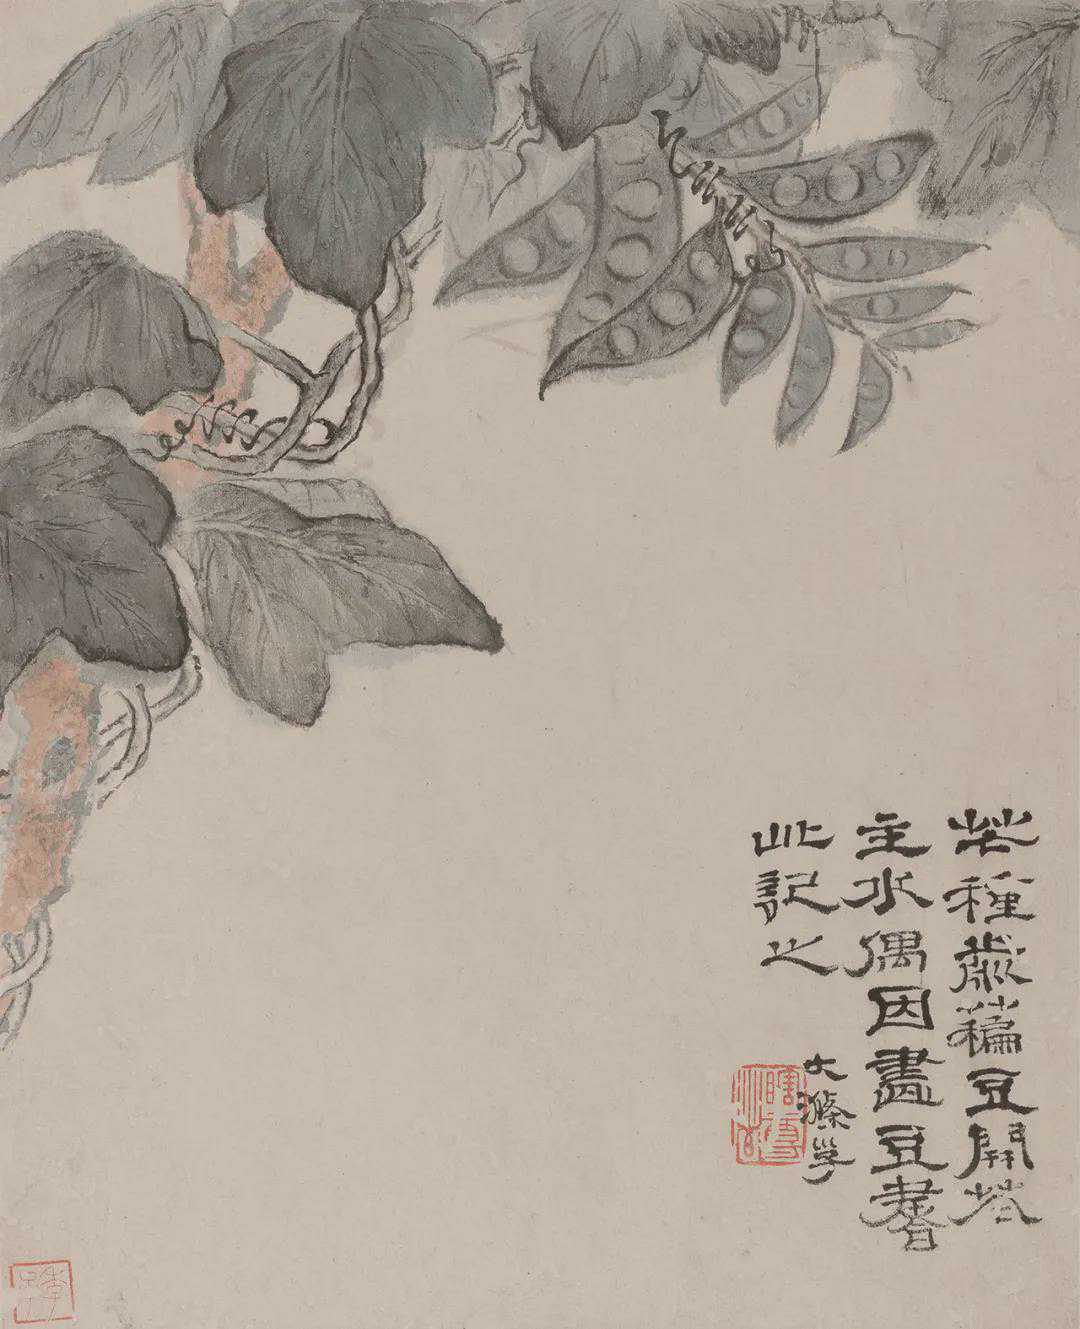 芒種歲藊豆開花
主水偶因畫豆書
此記之
大滌子